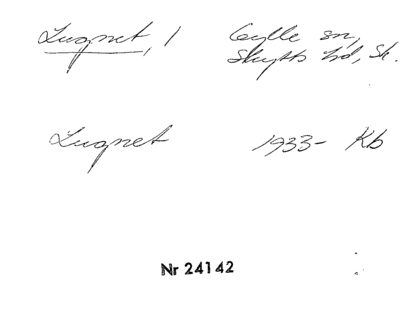 Lugnet, 1 Gylle sn,
Skytts hd, Sk.
Lugnet 1933- Kb
Nr 24142